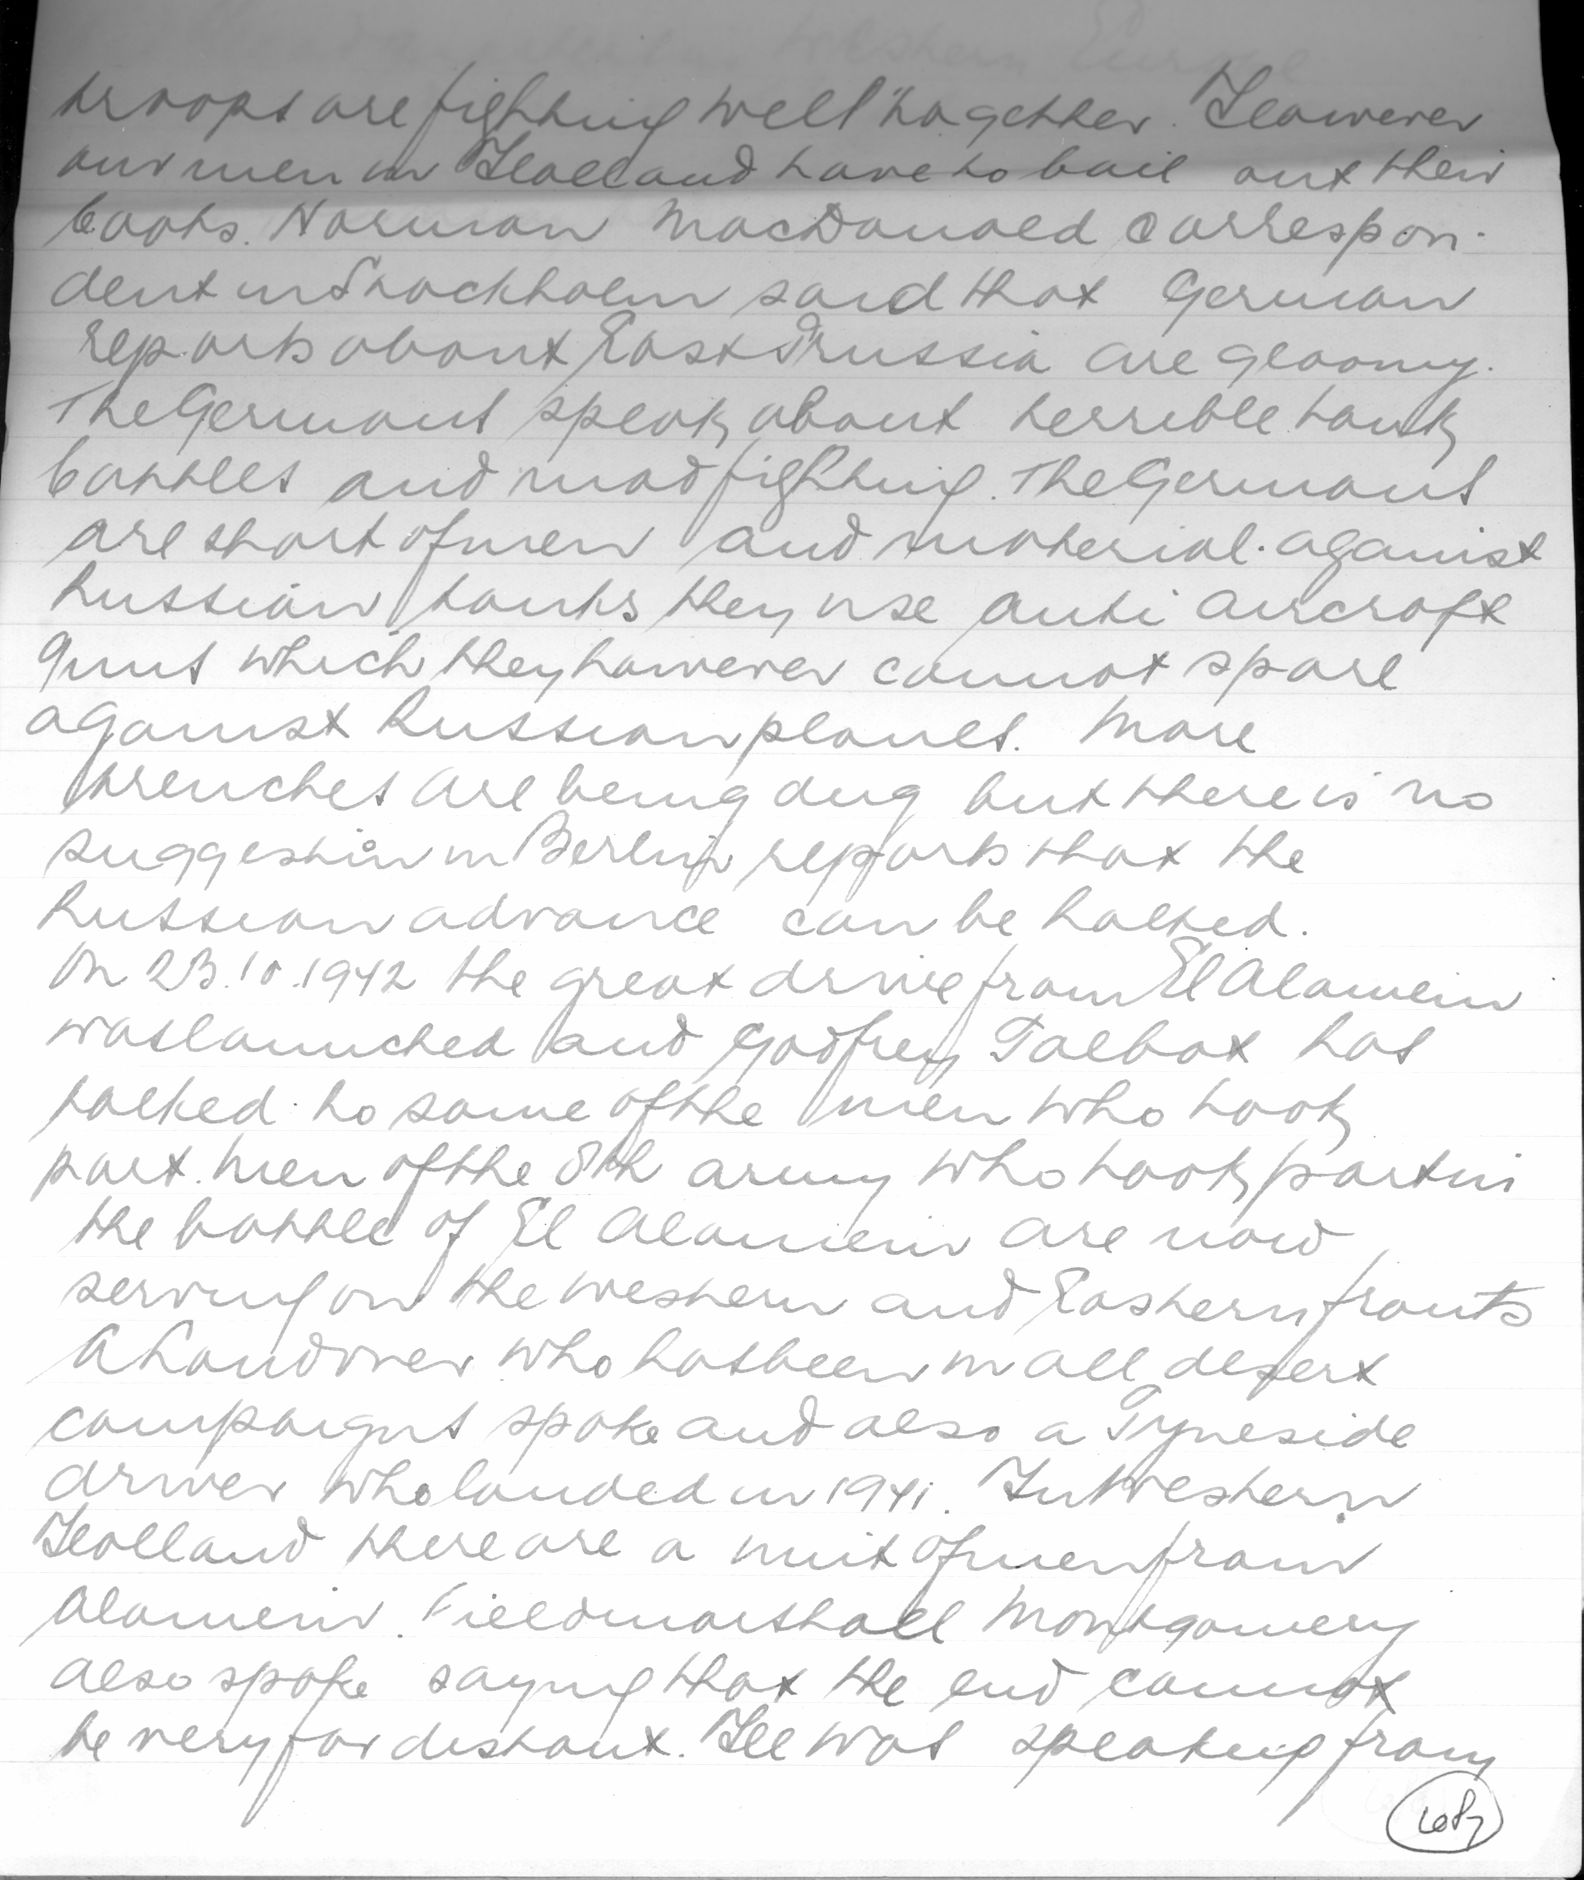 troops are fighting well together. However
our men in Holland have to bail out their
boots. Norman MacDonald correspon-
dent in Stockholm said that German
reports about East Prussia are gloomy.
The Germans speak about terrible tank
battles and mad fighting. The Germans
are short of men and material. against
Russian tanks they use anti aircraft
guns which they however cannot spare
against Russian planes. More
trenches are being dug but there is no
suggestion in Berlin reports that the
Russian advance can be halted.
On 23.10.1942 the great drive from El Alamein
was launched and Godfrey Talbot has
talked to some of the men who took
part. Men of the 8th army who took part in
the battle of El Alamein are now
serving on the western and Eastern fronts
A Londoner who has been in all desert
campaigns spoke and also a Tyneside
driver who landed in 1941. In Western
Holland there are a unit of men from
Alamein. Fieldmarshall Montgomery
also spoke saying that the end cannot
be very far distant. He was speaking from